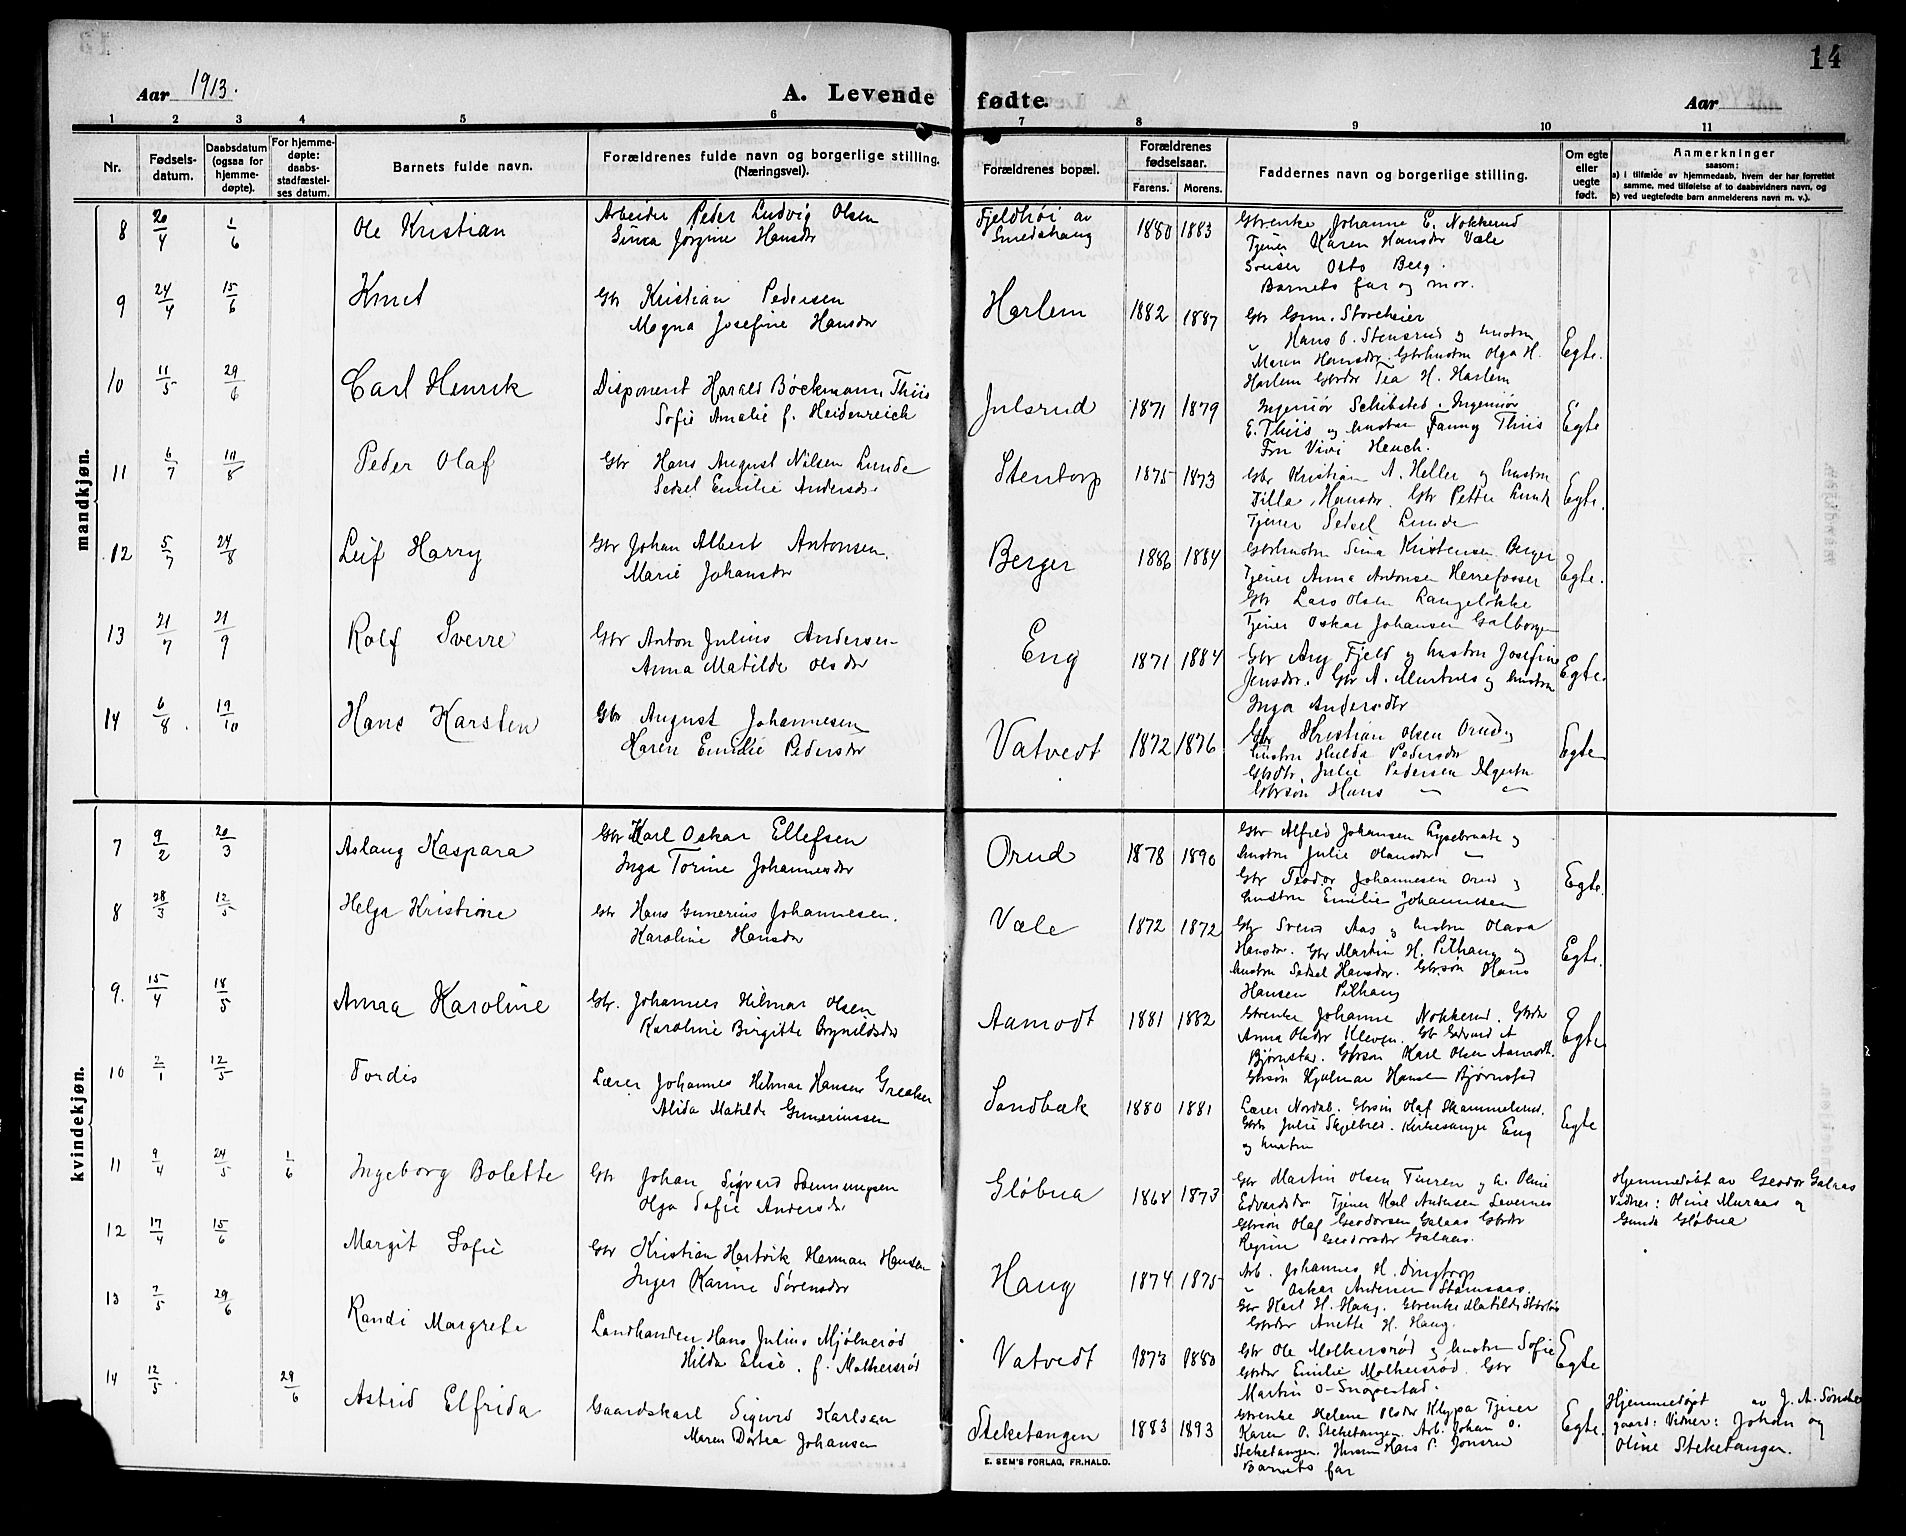 14
Aar 1913.
A. Levende fødte.
Aar
1 2 3 4 5 6 7 8 9 10 11
Nr.
Fødsels-
datum.
Daabsdatum
(ogsaa for
hjemme-
døpte).
For hjemme-
døpte:
daabs-
stadfæstel-
ses datum.
Barnets fulde navn.
Forældrenes fulde navn og borgerlige stilling.
(Næringsvei).
Forældrenes bopæl.
Forældrenes
fødselsaar.
Farens. Morens.
Faddernes navn og borgerlige stilling.
Om egte
eller
uegte
født.
Anmerkninger
saasom:
a) i tilfælde av hjemmedaab, hvem der har forrettet
samme, med tilføielse af to daabsvidners navn, og
b) ved uegtefødte barn anmelderens navn m. v.).
mandkjøn.
8 20/4 1/6 Ole Kristian
Arbeider Peder Ludvig Olsen
Jørgine Hansdr
Fjeldhøi av
Smedshaug
1880 1883
Gbrenke Johanne E. Nokkerud
Tjener Karen Hansdr Væle
Otto Berg.
Barnets far og mor.
9 24/4 15/6 Knut
Gbr Kristian Pedersen
Magna Josefine Hansdr
Harlem 1882 1887
Gbr Gun. Storeheier
" Hans O. Stensrud og hustru
Maren Hansdr. Gbrhustru Olga H.
Harlem Gbrdr Tea H. Harlem
Egte.
10 11/5 29/6 Carl Henrik
Disponent Harald Bøckmann Thiis
Sofie Amalie f. Heidenreich
Julsrud 1871 1879
Ingeniør Schibsted. Ingeniør
E. Thiis og hustru Fanny Thiis
Fru Vivi Heuch.
Egte
11 6/7 10/8 Peder Olaf
Gbr Hans August Nilsen Lunde
Sedsel Emilie Andersdr
Stentorp 1875 1873
Gbr Kristian A. Heller og hustru
Tilla Hansdr. Gbr Petter Lunde
Tjener Sedsel Lunde
Egte.
12 5/7 24/8 Leif Harry
Gbr Johan Albert Antonsen.
Marie Johansdr
Berger 1886 1884
Gbrhustru Sina Kristensen Berger
Tjener Anna Antonsen Herrefosser
Gbr Lars Olsen Langeløkke
Tjener Oskar Johansen Galborgen
Egte.
13 21/7 21/9 Rolf Sverre
Gbr Anton Julius Andersen
Anna Matilde Olsdr
Eng 1871 1884
Gbr Arg Fjeld og hustru Josefine
Jensdr. Gbr A. og hustru
Inga Andersdtr
Egte.
14 6/8 19/10 Hans Karsten
Gbr August Johannesen
Karen Emilie Pedersdr
Vatvedt 1872 1876
Gbr Kristian Olsen Orud og
hustru Hulda Pedersdr
Gbrdtr. Julie Pedersen
Gbrsøn Hans " "
Egte
kvindekjøn.
7 9/2 20/3 Aslaug Kaspara
Gbr Karl Oskar Ellefsen
Inga Torine Johannesdr
Orud 1878 1890
Gbr Alfred Johansen Lysebraate og
hustru Julie Olausdr "
Gbr Teodor Johannesen Orud og
hustru Emilie Johannessen
Egte.
8 28/3 12/5 Helga Kristiane
Gbr Hans Gunerius Johannesen.
Karoline Hansdr
Væle 1872 1872
Gbr Svend Aas og hustru Olava
Hansdr. Gbr Martin H. Pilhaug og
hustru Sedsel Hansdr. Gbrsøn Hans
Hansen Pilhaug
Egte.
9. 15/4 18/5 Anna Karoline
Gbr. Johannes Hilmar Olsen
Karoline Birgitte Brynildsdr
Aamodt 1881 1882
Gbrenke Johanne Nokkerud. Gbrdr
Anna Olsdr Kleven. Gbr Edvard A
Bjørnstad. Gbrsøn Karl Olsen Aamodt.
Gbrsøn Hjalmar Hansen Bjørnstad
Egte
10 2/1 12/5 Tordis
Lærer Johannes Hilmar Hansen Greaker
Alida Matilde Guneriussen
Sandbæk 1880 1881
Lærer Nordal. Gbrsøn Olaf Skammelsrud.
Gbrdr Julie Skjelbred. Kirkesanger Eng
og hustru
Egte
11 9/4 24/5 1/6 Ingeborg Bolette
Gbr Johan Sigvard Svenningsen
Olga Sofie Andersdr
Gløbua 1868 1873
Gbr Martin Olsen Tueren og h. Oline
Edvardsdr Tjener Karl Andersen Levernes
Gbrsøn Olaf Geodorsen Galaas Gbrdr
Regine Geodorsdr Galaas.
Hjemmedøbt av Geodor Galaas
Vidner: Oline Muraas og
Gunda Gløbua
12 17/4 15/6 Margit Sofie
Gbr Kristian Hartvik Herman Hansen
Inger Karine Sørensdr
Haug 1874 1875
Arb. Johannes H. Lingtorp
" Oskar Andersen Stamsaas.
Gbr Karl H. Haug. Gbrenke Matilde
Gbrdr Anette H. Haug.
13 2/5 29/6 Randi Margrete
Landhandler Hans Julius Mjølnerød
Hilda Elise f. Molkersrød
Vatvedt 1873 1880
Gbr Ole Molkersrød og hustru Sofie
Gbrdr Emilie Molkersrød. Gbr
Martin O. Snopestad.
Egte
14 12/5 29/6 Astrid Elfrida
Gaardskarl Sigurd Karlsen
Maren Dortea Johansen
Steketangen 1883 1893
Gbrenke Helene Olsdr Klypa Tjener
Karen O. Steketangen. Arb. Johan O.
Steketangen. Hans P. Jonsrud
Barnets far
Egte.
Hjemmedøpt av J. A. Sønste
gaard: Vidner: Johan og
Oline Steketangen.
E. SEM'S FORLAG, FR.HALD.